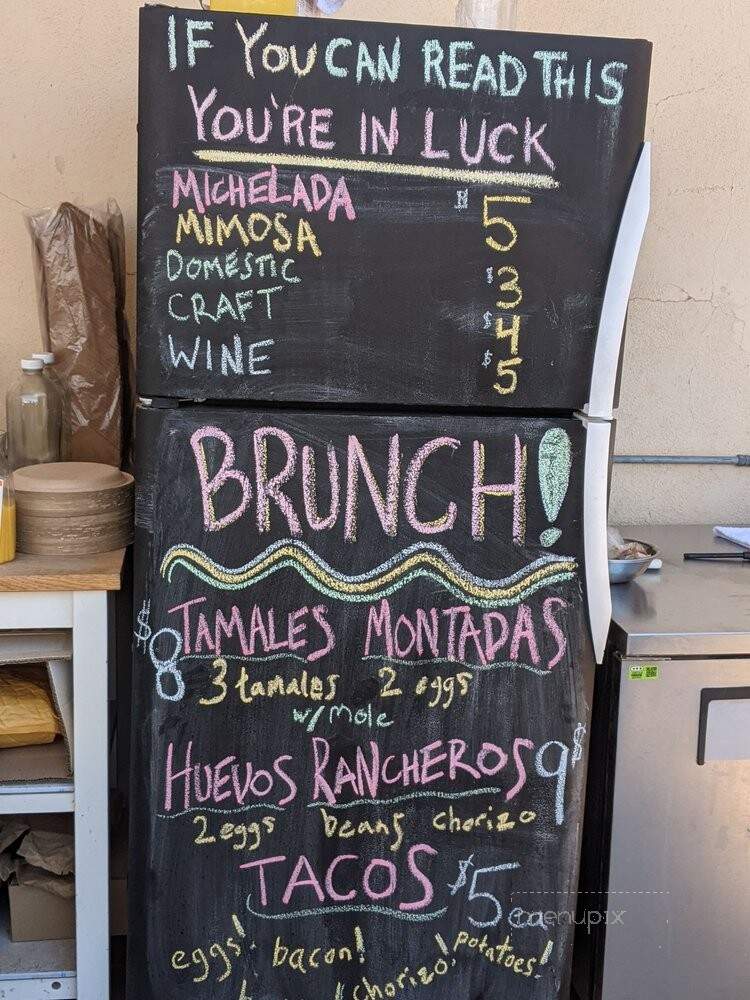 IF YOU CAN READ THIS
YOU'RE IN LUCK
MICHELADA $ 5
MIMOSA
DOMESTIC $ 3
CRAFT $ 4
WINE $ 5
BRUNCH!
$8 TAMALES MONTADAS
3 tamales 2 eggs
w/ mole
HUEVOS RANCHEROS 9$
2 eggs beans chorizo
TACOS $5 ea
eggs! bacon! potatoes!
chorizo!
menupix